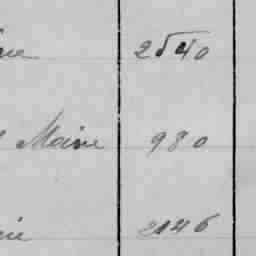 2540
Maine 980
2146